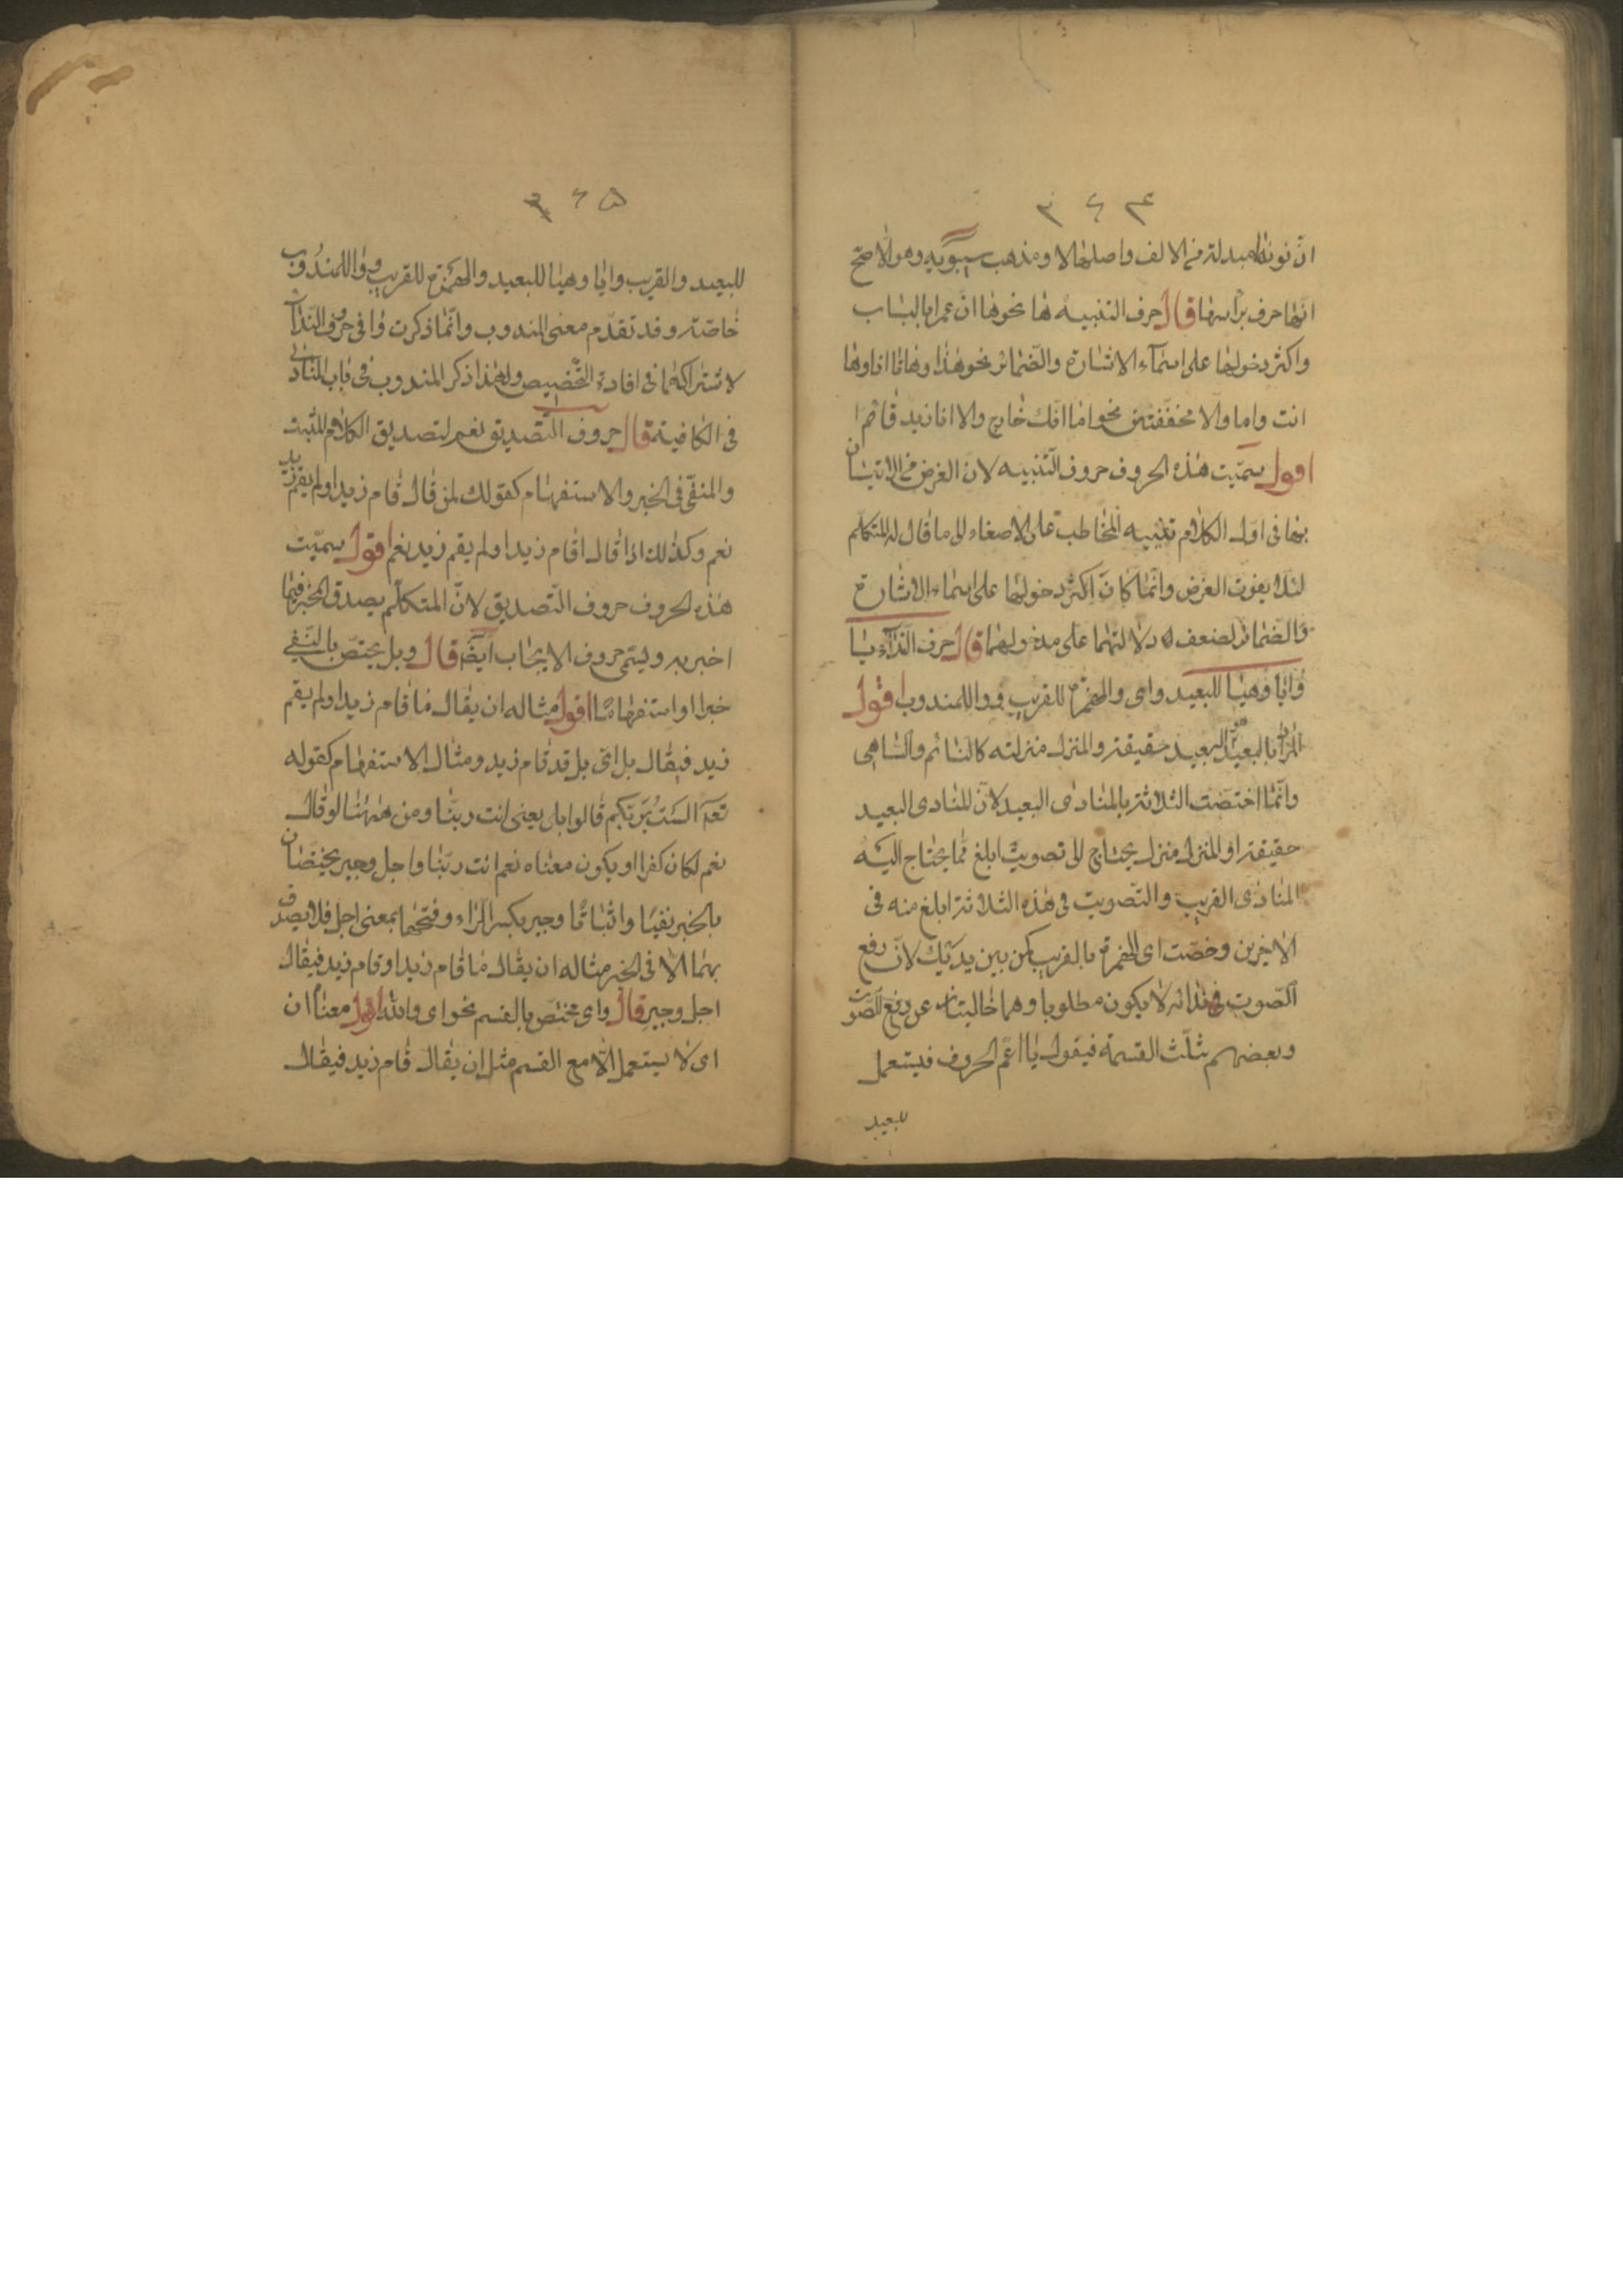 ٣٦٤
انّ نونها مبدلة من الالف واصلها لا ومذهب سيبويه وهو الاصح
انّها حرف برأسها قال حرف التنبيه ها نحو ها انّ عمرا بالباب
واكثر دخولها على اسمآء الاشارة والضمائر نحو هذا وهاتا وها انا وها
انت واما والا مخففتين نحو اما انّك خارج والا انّ زيد قائم
اقول سمّيت هذه الحروف حروف التنبيه لان الغرض من الاتيان
بها فى اوّل الكلام تنبيه المخاطب على الاصغاء الى ما قال له المتكلم
لئلا يفوت الغرض وانّما كان اكثر دخولها على اسماء الاشارة
والضمائر لضعف دلالتهما على مدلولهما قال حرف النداء يا
وايا وهيا للبعيد واى والهمزة للقريب و وا للمندوب اقول
المراد بالبعيد البعيد حقيقة والمنزل منزلته كالنائم والساهى
وانّما اختصت الثلاثة بالمنادى البعيد لانّ المنادى البعيد
حقيقة او المنزل منزله يحتاج الى تصويت ابلغ مما يحتاج اليه
المنادى القريب والتصويت فى هذه الثلاثة ابلغ منه فى
الاخيرين وخصّت اى والهمزة بالقريب كمن بين يديك لانّ رفع
الصّوت فى ندائه لا يكون مطلوبا وهما خاليتان عن رفع الصّوت
وبعضهم ثلّث القسمة فيقول يا اعمّ الحروف فيستعمل
للبعيد
٣٦٥
للبعيد والقريب وايا وهيا للبعيد والهمزة للقريب و وا للمندوب
خاصّة وقد تقدّم معنى المندوب وانّما ذكرت وا فى حروف النداء
لاشتراكهما فى افادة التخصيص ولهذا ذكر المندوب فى باب المنادى
فى الكافية قال حروف التصديق نعم لتصديق الكلام المثبت
والمنفى فى الخبر والاستفهام كقولك لمن قال قام زيد او لم يقم زيد
نعم وكذلك اذا قال اقام زيد او لم يقم زيد نعم اقول سمّيت
هذه الحروف حروف التصديق لانّ المتكلّم يصدق المخبر فيما
اخبر به ويسمّى حروف الايجاب ايضا قال وبلى يختصّ بالنّفى
خبرا او استفهاما اقول مثاله ان يقال ما قام زيد او لم يقم
زيد فيقال بلى اى بلى قد قام زيد ومثال الاستفهام كقوله
تعالى الست بربّكم قالوا بلى يعنى انت ربّنا ومن ههنا لو قال
نعم لكان كفرا او يكون معناه نعم انت ربّنا واجل وجير يختصان
بالخبر نفيا واثباتا وجير بكسر الراء وفتحها بمعنى اجل فلا يصدق
بهما الا فى الخبر مثاله ان يقال ما قام زيد او قام زيد فيقال
اجل وجير قال واى مختصّ بالقسم نحو اى والله اقول معناه ان
اى لا يستعمل الّا مع القسم مثل ان يقال قام زيد فيقال